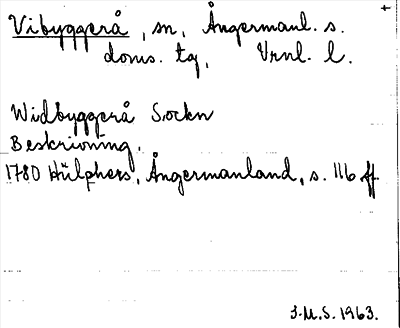 +
Vibyggerå, sn, Ångermanl. s.
doms. tg, Vrnl. l.
Widbyggerå Sockn
Beskrivning.
1780 Hülphers, Ångermanland, s. 116 ff.
J.M.S. 1963.